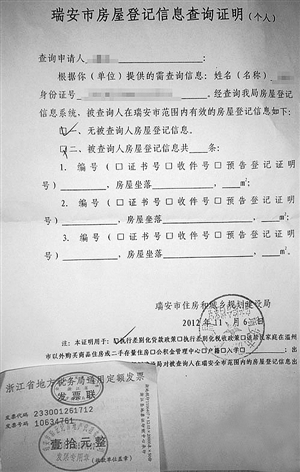 瑞安市房屋登记信息查询证明(个人)
查询申请人
根据你(单位)提供的需查询信息:姓名(名称)
身份证号 ,经查询我局房屋登记
信息系统、被查询人在瑞安市范围内有效的房屋登记信息如下:
☑一、无被查询人房屋登记信息。
☑二、被查询人房屋登记信息共___条:
1. 编号(□证书号□收件号□预告登记证明
号)______,房屋坐落______,____㎡;
2. 编号(□证书号□收件号□预告登记证明
号)______,房屋坐落______,____㎡;
3. 编号(□证书号□收件号□预告登记证明
号)______,房屋坐落______,____㎡;
瑞安市住房和城乡规划建设局
2012年11月6日
注:本证明用于:☑执行差别化贷款政策□执行差别化税收政策□该居民家庭在温州
市以外购买商品住房或二手存量住房□公积金管理中心□户籍□入学□
局对被查询人在瑞安市范围内的房屋登记
浙江省地方税务局通用定额发票
发票联
发票代码 233001261712
发票号码 10634761
壹拾元整
发票专用章
(收款单位盖章)